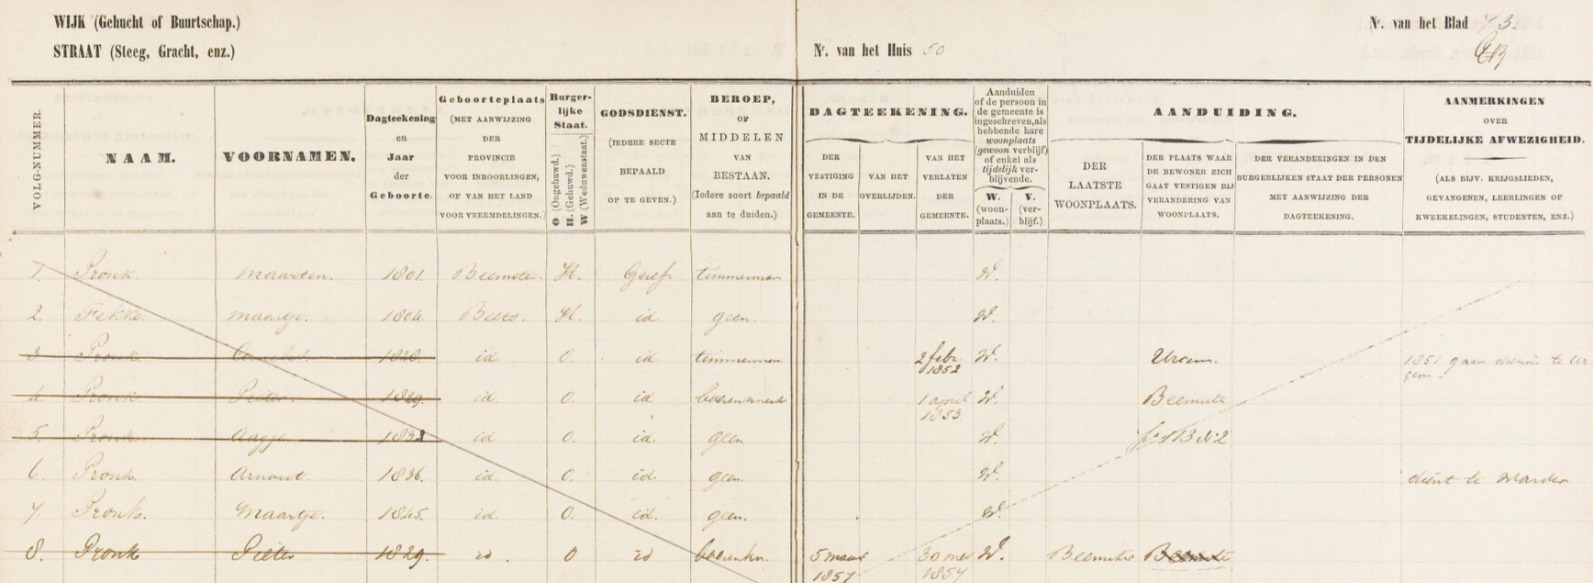 WIJK (Gehucht of Buurtschap.)
STRAAT (Steeg, Gracht, enz.)
Nr. van het Huis 50
Nr. van het Blad
VOLG-NUMMER.
NAAM.
VOORNAMEN.
Dagteekening
en
Jaar
der
Geboorte.
Geboorteplaats
(MET AANWIJZING
DER
PROVINCIE
VOOR INBOORLINGEN,
OF VAN HET LAND
VOOR VREEMDELINGEN.)
Burger-
lijke
Staat.
O (Ongehuwd.)
H. (Gehuwd.)
W (Weduwenstaat.)
GODSDIENST.
(IEDERE SECTE
BEPAALD
OP TE GEVEN.)
BEROEP,
OF
MIDDELEN
VAN
BESTAAN.
(Iedere soort bepaald
aan te duiden.)
DAGTEEKENING.
DER
VESTIGING
IN DE
GEMEENTE.
VAN HET
OVERLIJDEN.
VAN HET
VERLATEN
DER
GEMEENTE.
Aanduiden
of de persoon in
de gemeente is
ingeschreven, als
hebbende hare
woonplaats
(gewoon verblijf)
of enkel als
tijdelijk ver-
blijvende.
W.
(woon-
plaats.)
V.
(ver-
blijf.)
AANDUIDING.
DER
LAATSTE
WOONPLAATS.
DER PLAATS WAAR
DE BEWONER ZICH
GAAT VESTIGEN BIJ
VERANDERING VAN
WOONPLAATS.
DER VERANDERINGEN IN DEN
BURGERLIJKEN STAAT DER PERSONEN
MET AANWIJZING DER
DAGTEEKENING.
AANMERKINGEN
OVER
TIJDELIJKE AFWEZIGHEID.
(ALS BIJV. KRIJGSLIEDEN,
GEVANGENEN, LEERLINGEN OF
KWEEKELINGEN, STUDENTEN, ENZ.)
1. Pronk. Maarten. 1801. Beemster. H. Geref. timmerman W.
2. Fekke. Maartje. 1804. Beets. H. id geen. W.
3 Pronk 1828. id O. id timmerman 2 febr. 1852 W. Ursem. 1851 gaan dienen te Ur
sem.
4. Pronk Pieter 1829. id O. id. boerenknecht 1 april 1853 W. Beemster
5. Pronk Aagje id O. id. geen W.
6. Pronk. Arnout. 1836. id. O. id geen. W. dient te
7. Pronk. Maartje. 1845. id. O. id. geen. W.
8. Pronk Pieter 1829. id. O id boerenkn. 5 maart 1857 30 mei 1857 W. Beemster Beemster